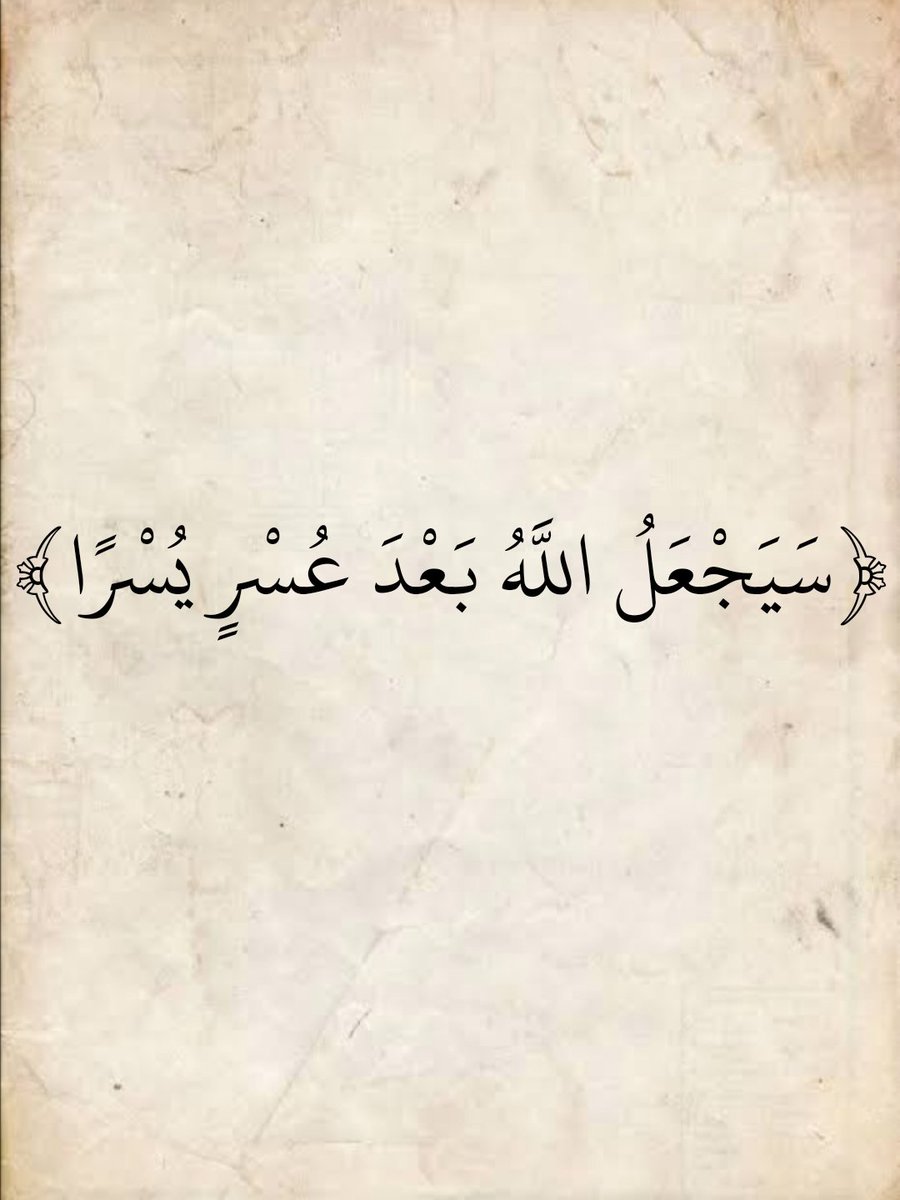 ﴿سَيَجْعَلُ اللَّهُ بَعْدَ عُسْرٍ يُسْرًا﴾